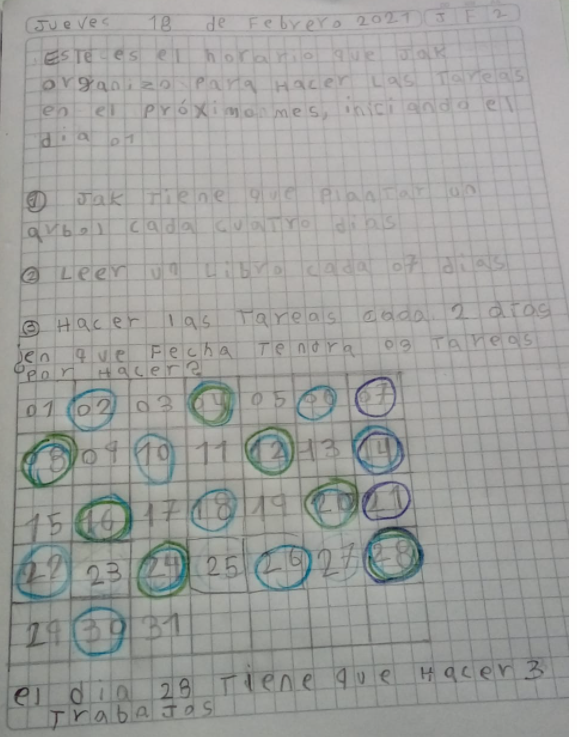 Jueves 18 de Febrero 2021 J F 2
Este es el horario que Jak
organizo para Hacer Las Tareas
en el próximo mes, iniciando el
dia 01
① Jak Tiene que Plantar un
arbol cada cuatro dias
② Leer un Libro cada 07 dias
③ Hacer las Tareas cada 2 dias
en que Fecha Tendra 03 Tareas
por Hacer?
01 02 03 04 05 06 07
08 09 10 11 12 13 14
15 16 17 18 19 20 21
22 23 24 25 26 27 28
29 30 31
el dia 28 Tiene que Hacer 3
Trabajos